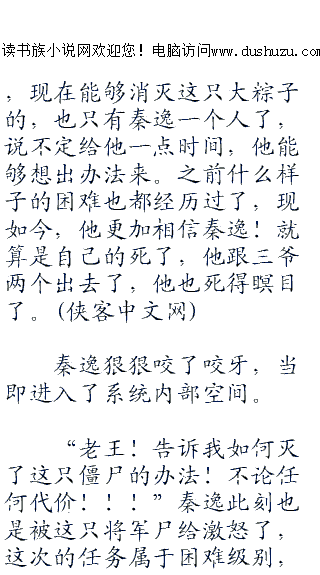 读书族小说网欢迎您！电脑访问www.dushuzu.com
，现在能够消灭这只大粽子
的，也只有秦逸一个人了，
说不定给他一点时间，他能
够想出办法来。之前什么样
子的困难也都经历过了，现
如今，他更加相信秦逸！就
算是自己的死了，他跟三爷
两个出去了，他也死得瞑目
了。(侠客中文网)
秦逸狠狠咬了咬牙，当
即进入了系统内部空间。
“老王！告诉我如何灭
了这只僵尸的办法！不论任
何代价！！！”秦逸此刻也
是被这只将军尸给激怒了，
这次的任务属于困难级别，